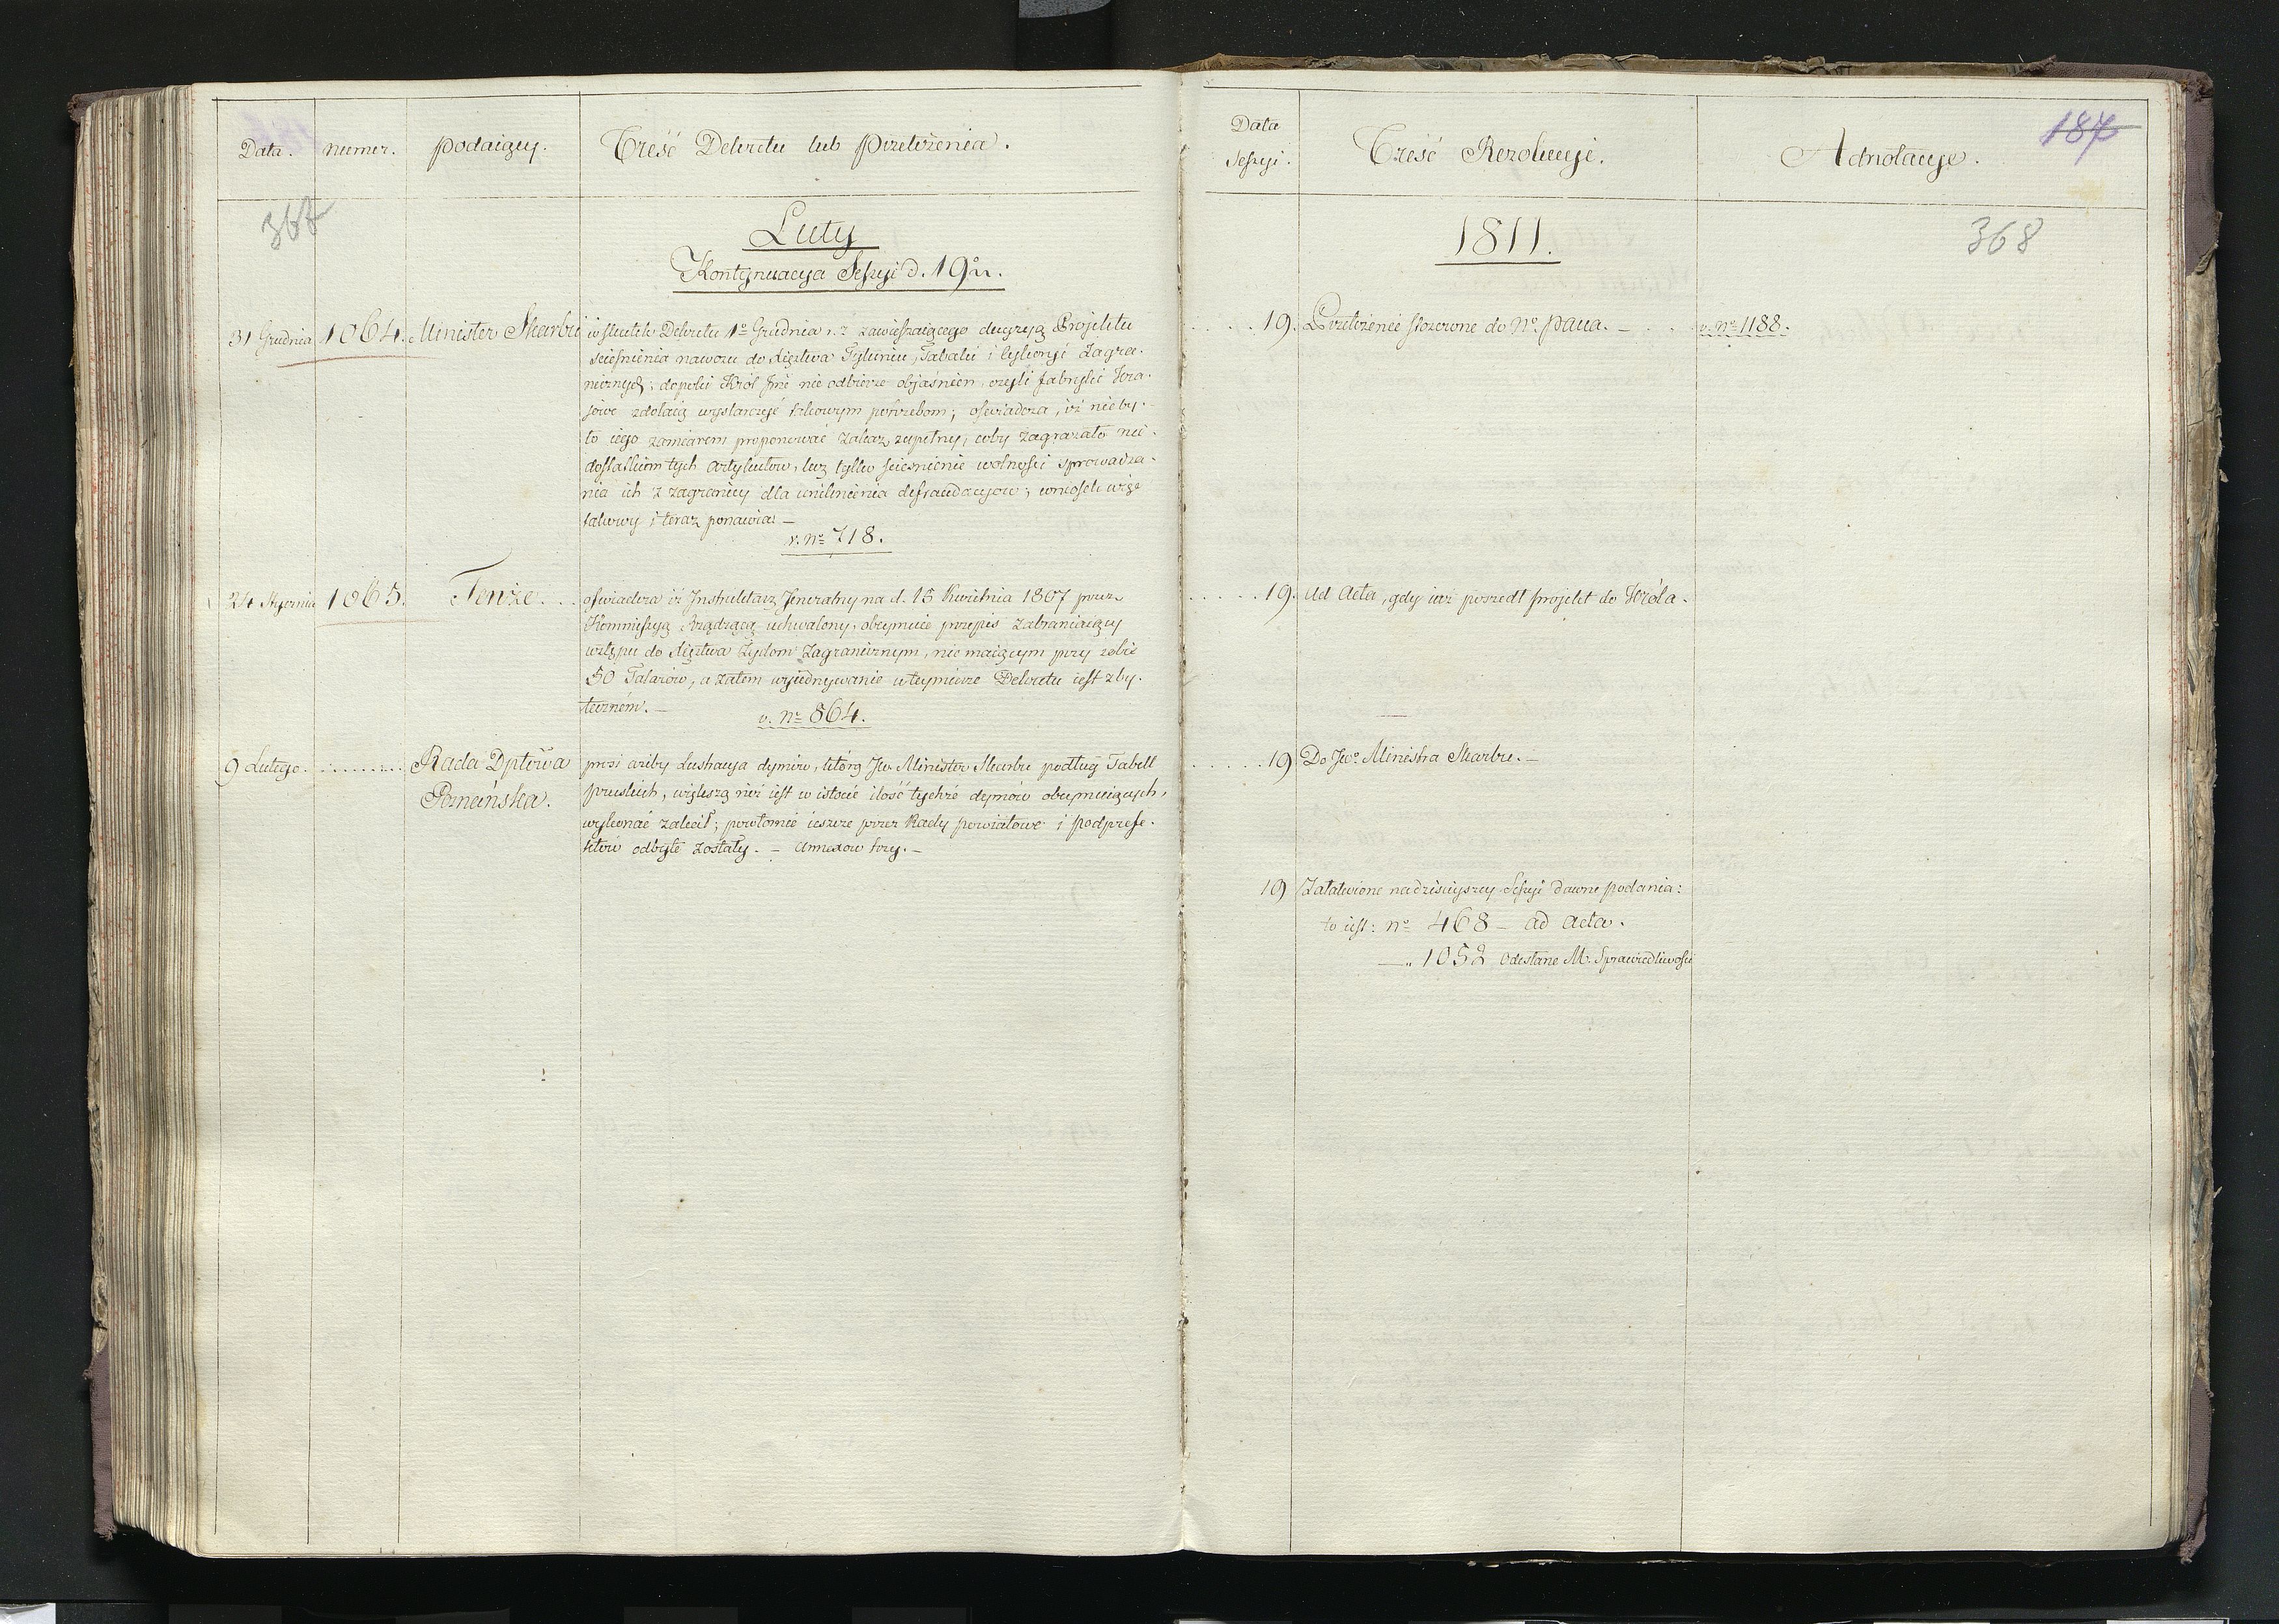 Data. numer. podaiący. Treść Dekretu lub Przełożenia.
368
Luty
Kontynuacya Sessyi d. 19º n.
31 Grudnia 1064. Minister Skarbu w skutek Dekretu 1º Grudnia r. z. zawieszaiącego decyzyą Projektu
ścieśnienia nawozu do Xięstwa Tytuniu, Tabaki i Cykoryi Zagra-
nicznych, dopóki Król Jmć nie odbierze obiaśnień, czyli fabryki kra-
jowe zdołaią wystarczyć takowym potrzebom; oświadcza, iż nie by-
ło iego zamiarem proponować zakaz zupełny, coby zagrażało nie-
dostatkiem tych artykułów, lecz tylko ścieśnienie wolności sprowadza-
nia ich z zagranicy dla uniknienia defraudacyow; wniosek więc
takowy i teraz ponawia. —
v. Nº 718.
24 Stycznia 1065. Tenże. oświadcza iż Instruktarz Jeneralny na d. 15 Kwietnia 1807 przez
Kommissyą Rządzącą uchwalony, obeymuie przepis zabraniaiący
wstępu do Xięstwa Żydom Zagranicznym, nie maiącym przy sobie
50 Talarów, a zatem wyiednywanie w teymierze Dekretu iest zby-
tecznem. —
v. Nº 864.
9 Lutego. Rada Dptowa prosi ażeby Lustracya dymów, którą Jw. Minister Skarbu podług Tabell
Poznańska. pruskich, większą niż iest w istocie ilość tychże dymów obeymuiących,
wykonać zalecił; powtornie ieszcze przez Rady powiatowe i podprefe-
któw odbyte zostały. — Annexow trzy. —
Data
Sessyi. Treść Rezolucyi. Adnotacye. 187
1811. 368
19. Przełożenie złożone do Nº. paua. — v. Nº 1188.
19. ad acta, gdy iuż poszedł projekt do Króla.
19 Do Jwº Ministra Skarbu. —
19 Załatwione na dzisieyszey Sessyi dawne podania:
to iest: Nº 468 — ad acta.
—„ 1052 odesłane M. Sprawiedliwości